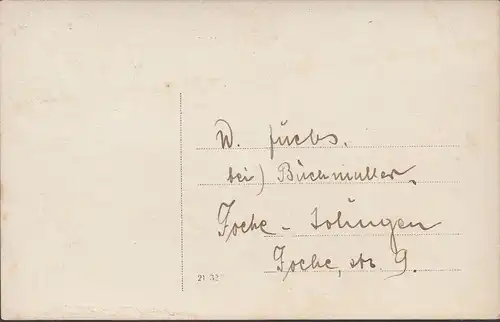 W. Fuchs.
bei) Büchmüller.
Foche - Solingen
Foche, str 9.
21 52